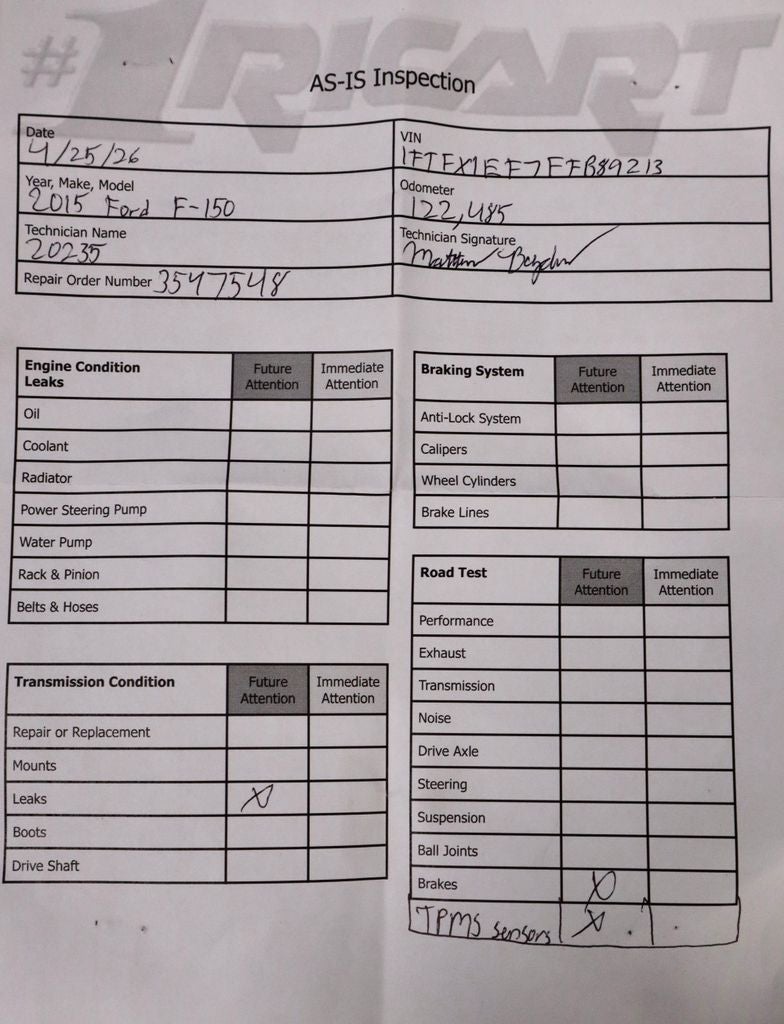 #1 RICART
AS-IS Inspection
Date
4/25/26
VIN
1FTFX1EF7FFB89213
Year, Make, Model
2015 Ford F-150
Odometer
122,485
Technician Name
20235
Technician Signature
Repair Order Number 3547548
Engine Condition Leaks
Future Attention
Immediate Attention
Oil
Coolant
Radiator
Power Steering Pump
Water Pump
Rack & Pinion
Belts & Hoses
Transmission Condition
Future Attention
Immediate Attention
Repair or Replacement
Mounts
Leaks X
Boots
Drive Shaft
Braking System
Future Attention
Immediate Attention
Anti-Lock System
Calipers
Wheel Cylinders
Brake Lines
Road Test
Future Attention
Immediate Attention
Performance
Exhaust
Transmission
Noise
Drive Axle
Steering
Suspension
Ball Joints
Brakes X
TPMS sensors X